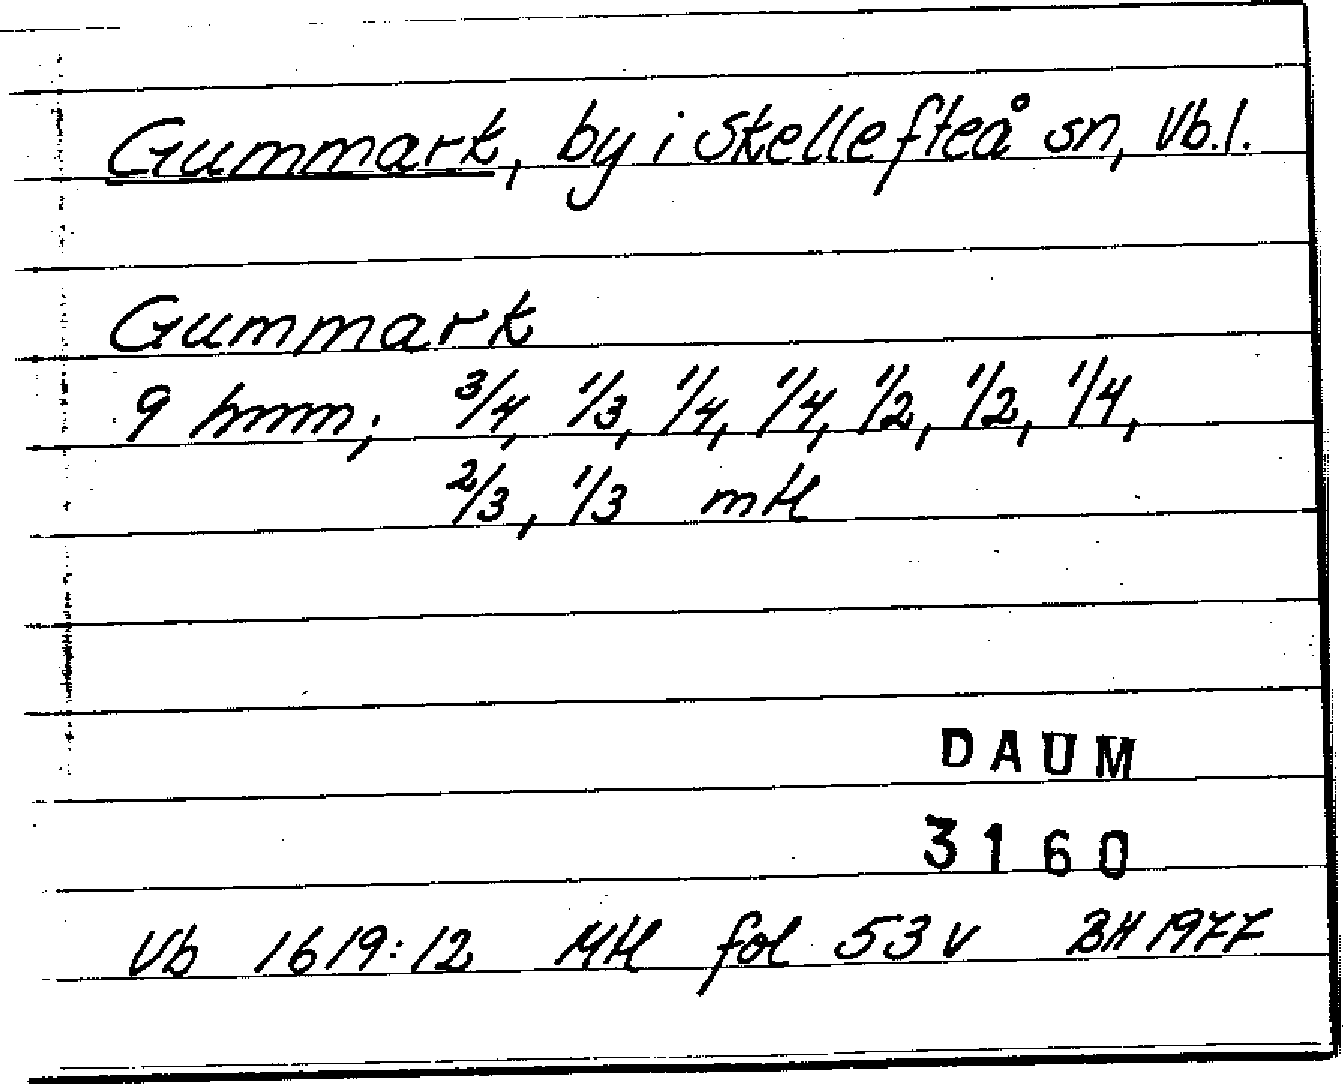 Gummark, by i Skellefteå sn, Vb.l.
Gummark
9 hmm; 3/4, 1/3, 1/4, 1/4, 1/2, 1/2, 1/4,
2/3, 1/3 mtl
DAUM
3160
Vb 1619:12 Mtl fol 53 v BH 1977